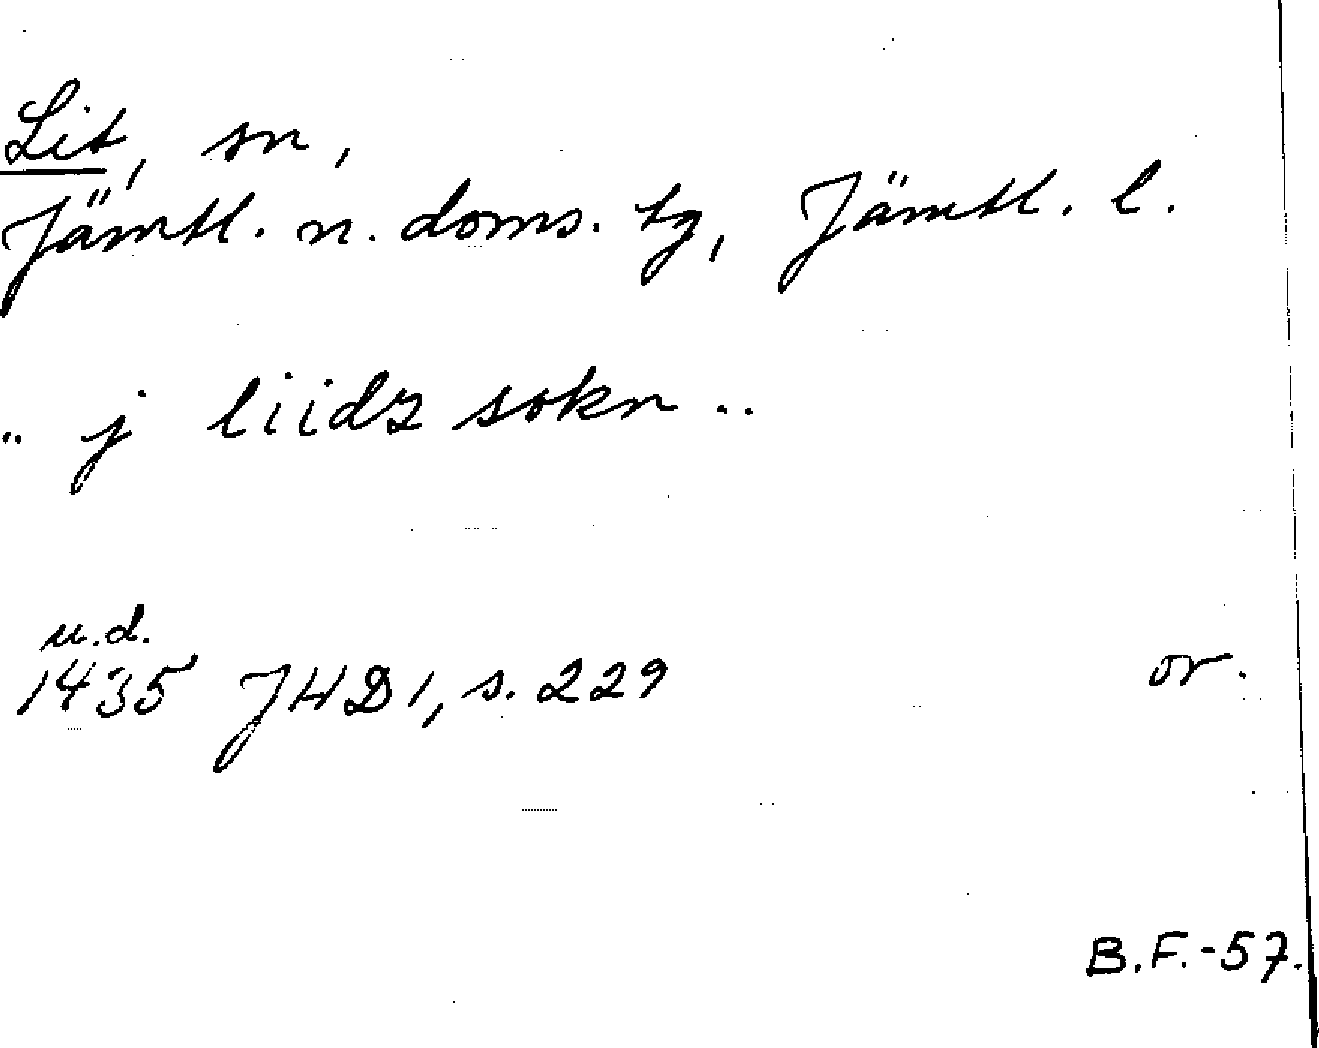 Lit, sn,
Jämtl. n. doms. tg, Jämtl. l.
.. j liidz sokn ..
u.d.
1435 JHD 1, s. 229 or.
B.F.-57.